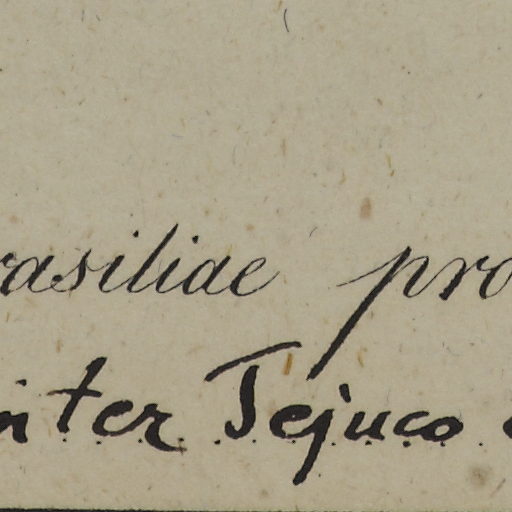 rasiliae pro
inter Tejuco